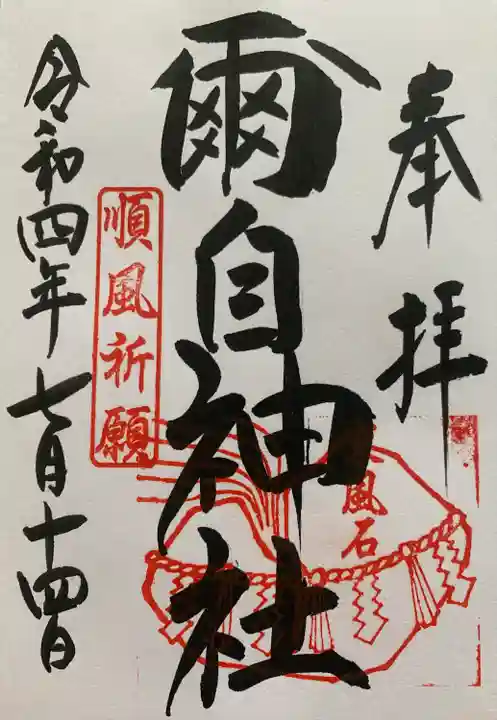 奉拝
爾自神社
東風石
順風祈願
令和四年七月十四日